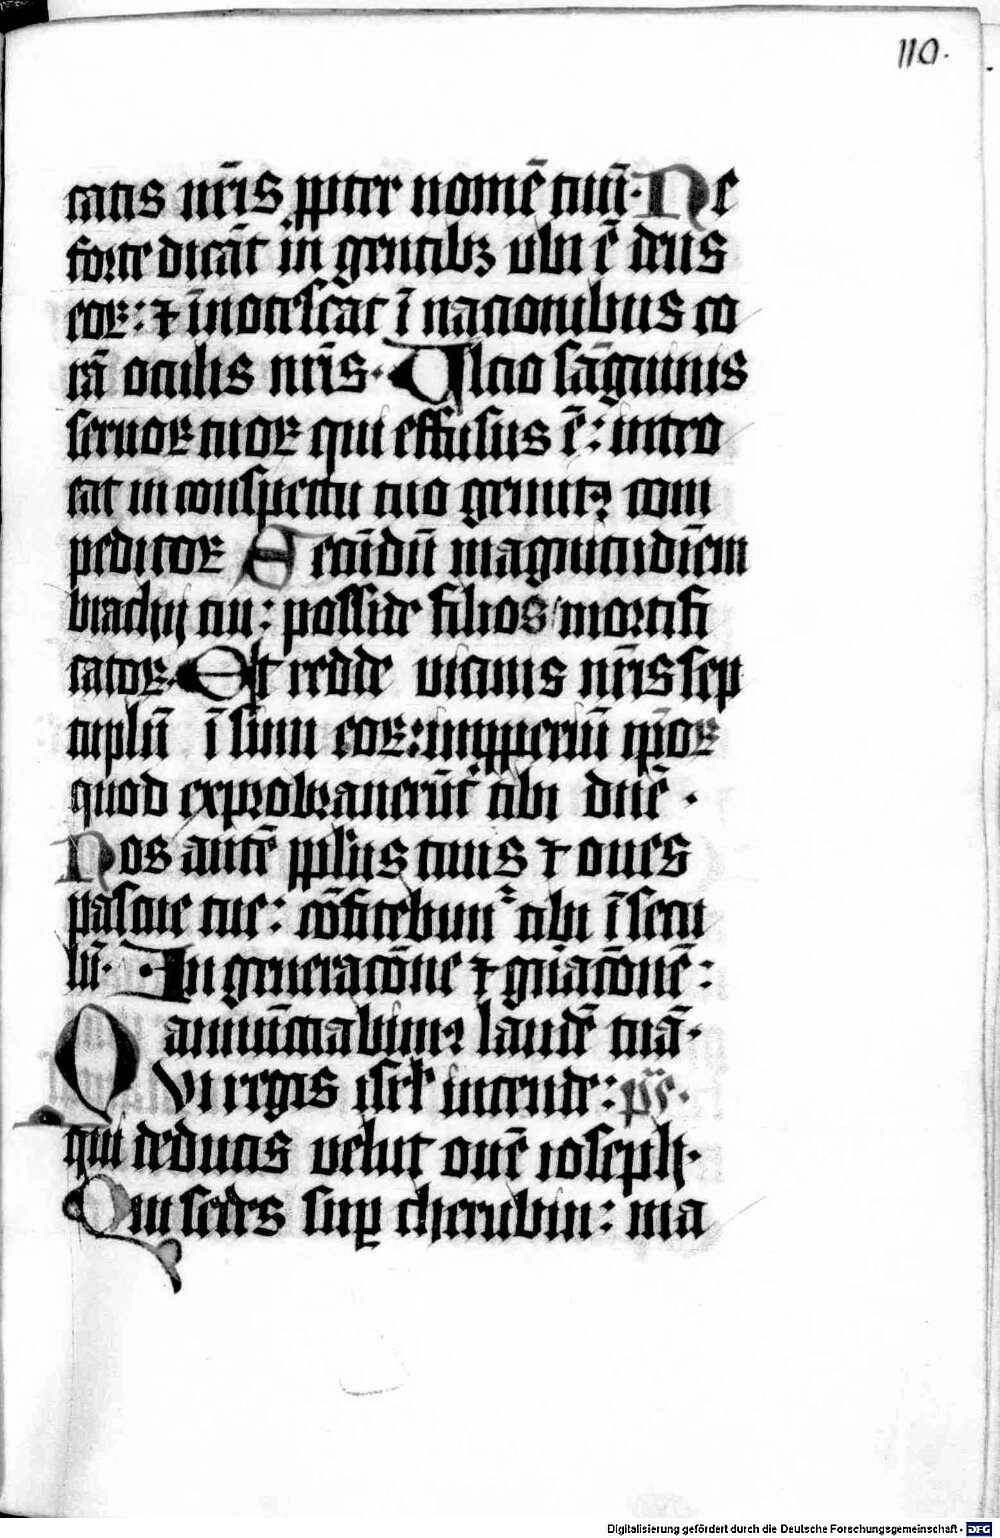 110.
catis nr̄is ꝓpter nomē tuū. Ne
forte dicāt in gentibꝫ vbi ē deus
eoꝝ: ⁊ īnotescat ī nationibus co
rā oculis nr̄is. Ultio sāguinis
seruoꝝ tuoꝝ qui effusus ē: intro
eat in conspectu tuo gemitꝯ com
peditoꝝ Secūdū magnitudīem
brachij tui: posside filios mortifi
catoꝝ. Et redde vicinis nr̄is sep
tuplū ī sinu eoꝝ: imꝓperiū ip̄oꝝ
quod exprobrauerūt tibi dn̄e .
Nos autē ppl̄us tuus ⁊ oues
pascue tue: cōfitebimur tibi ī secu
lū. In generacōne ⁊ gn̄iacōnē:
annūctiabimꝯ laudē tuā.
QVi regis isrl̄ intende: ps̄.
qui deducis velut ouē ioseph.
Qui sedes suꝑ cherubin: ma
Digitalisierung gefördert durch die Deutsche Forschungsgemeinschaft - DFG